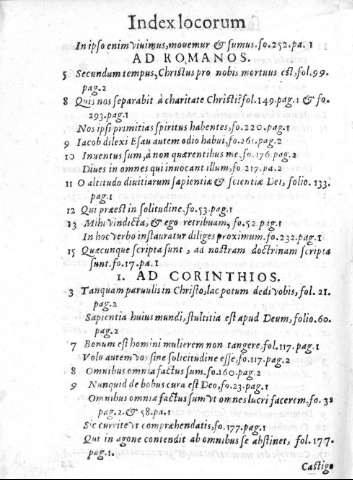 Index locorum
In ipso enim viuimus, mouemur & sumus. fo. 252. pa. 1
AD ROMANOS.
5 Secundum tempus, Christus pro nobis mortuus est, fol. 99.
pag. 2
8 Quis nos separabit à charitate Christi? fol. 149. pag. 1 & fo.
293. pag. 1
Nos ipsi primitias spiritus habentes, fo. 220. pag. 1
9 Iacob dilexi Esau autem odio habui, fo. 261. pag. 2
10 Inuentus sum, à non quærentibus me, fo. 176. pag. 2
Diues in omnes qui inuocant illum, fo 217. pa. 2
11 O altitudo diuitiarum sapientiæ & scientiæ Dei, folio. 133.
pag. 1
12 Qui præest in solitudine. fo. 53. pag. 1
13 Mihi vindicta, & ego retribuam, fo. 52 pag. 1
In hoc verbo instauratur diliges proximum. fo. 232. pag. 1
15 Quæcunque scripta sunt, ad nostram doctrinam scripta
sunt. fo. 17. pa. 1
1. AD CORINTHIOS.
3 Tanquam paruulis in Christo, lac potum dedi vobis, fol. 21.
pag. 2
Sapientia huius mundi, stultitia est apud Deum, folio. 60.
pag. 2
7 Bonum est homini mulierem non tangere. fol. 117. pag. 1
Volo autem vos sine solicitudine esse, fo. 117. pag. 2
8 Omnibus omnia factus sum. fo. 160. pag. 2
9 Nunquid de bobus cura est Deo, fo. 23. pag. 1
Omnibus omnia factus sum vt omnes lucri facerem. fo. 32
pag. 2. & 58. pa. 1
Sic currite vt compræhendatis, fo. 177. pag. 1
Qui in agone contendit ab omnibus se abstinet, fol. 177.
pag. 1.
Castigo